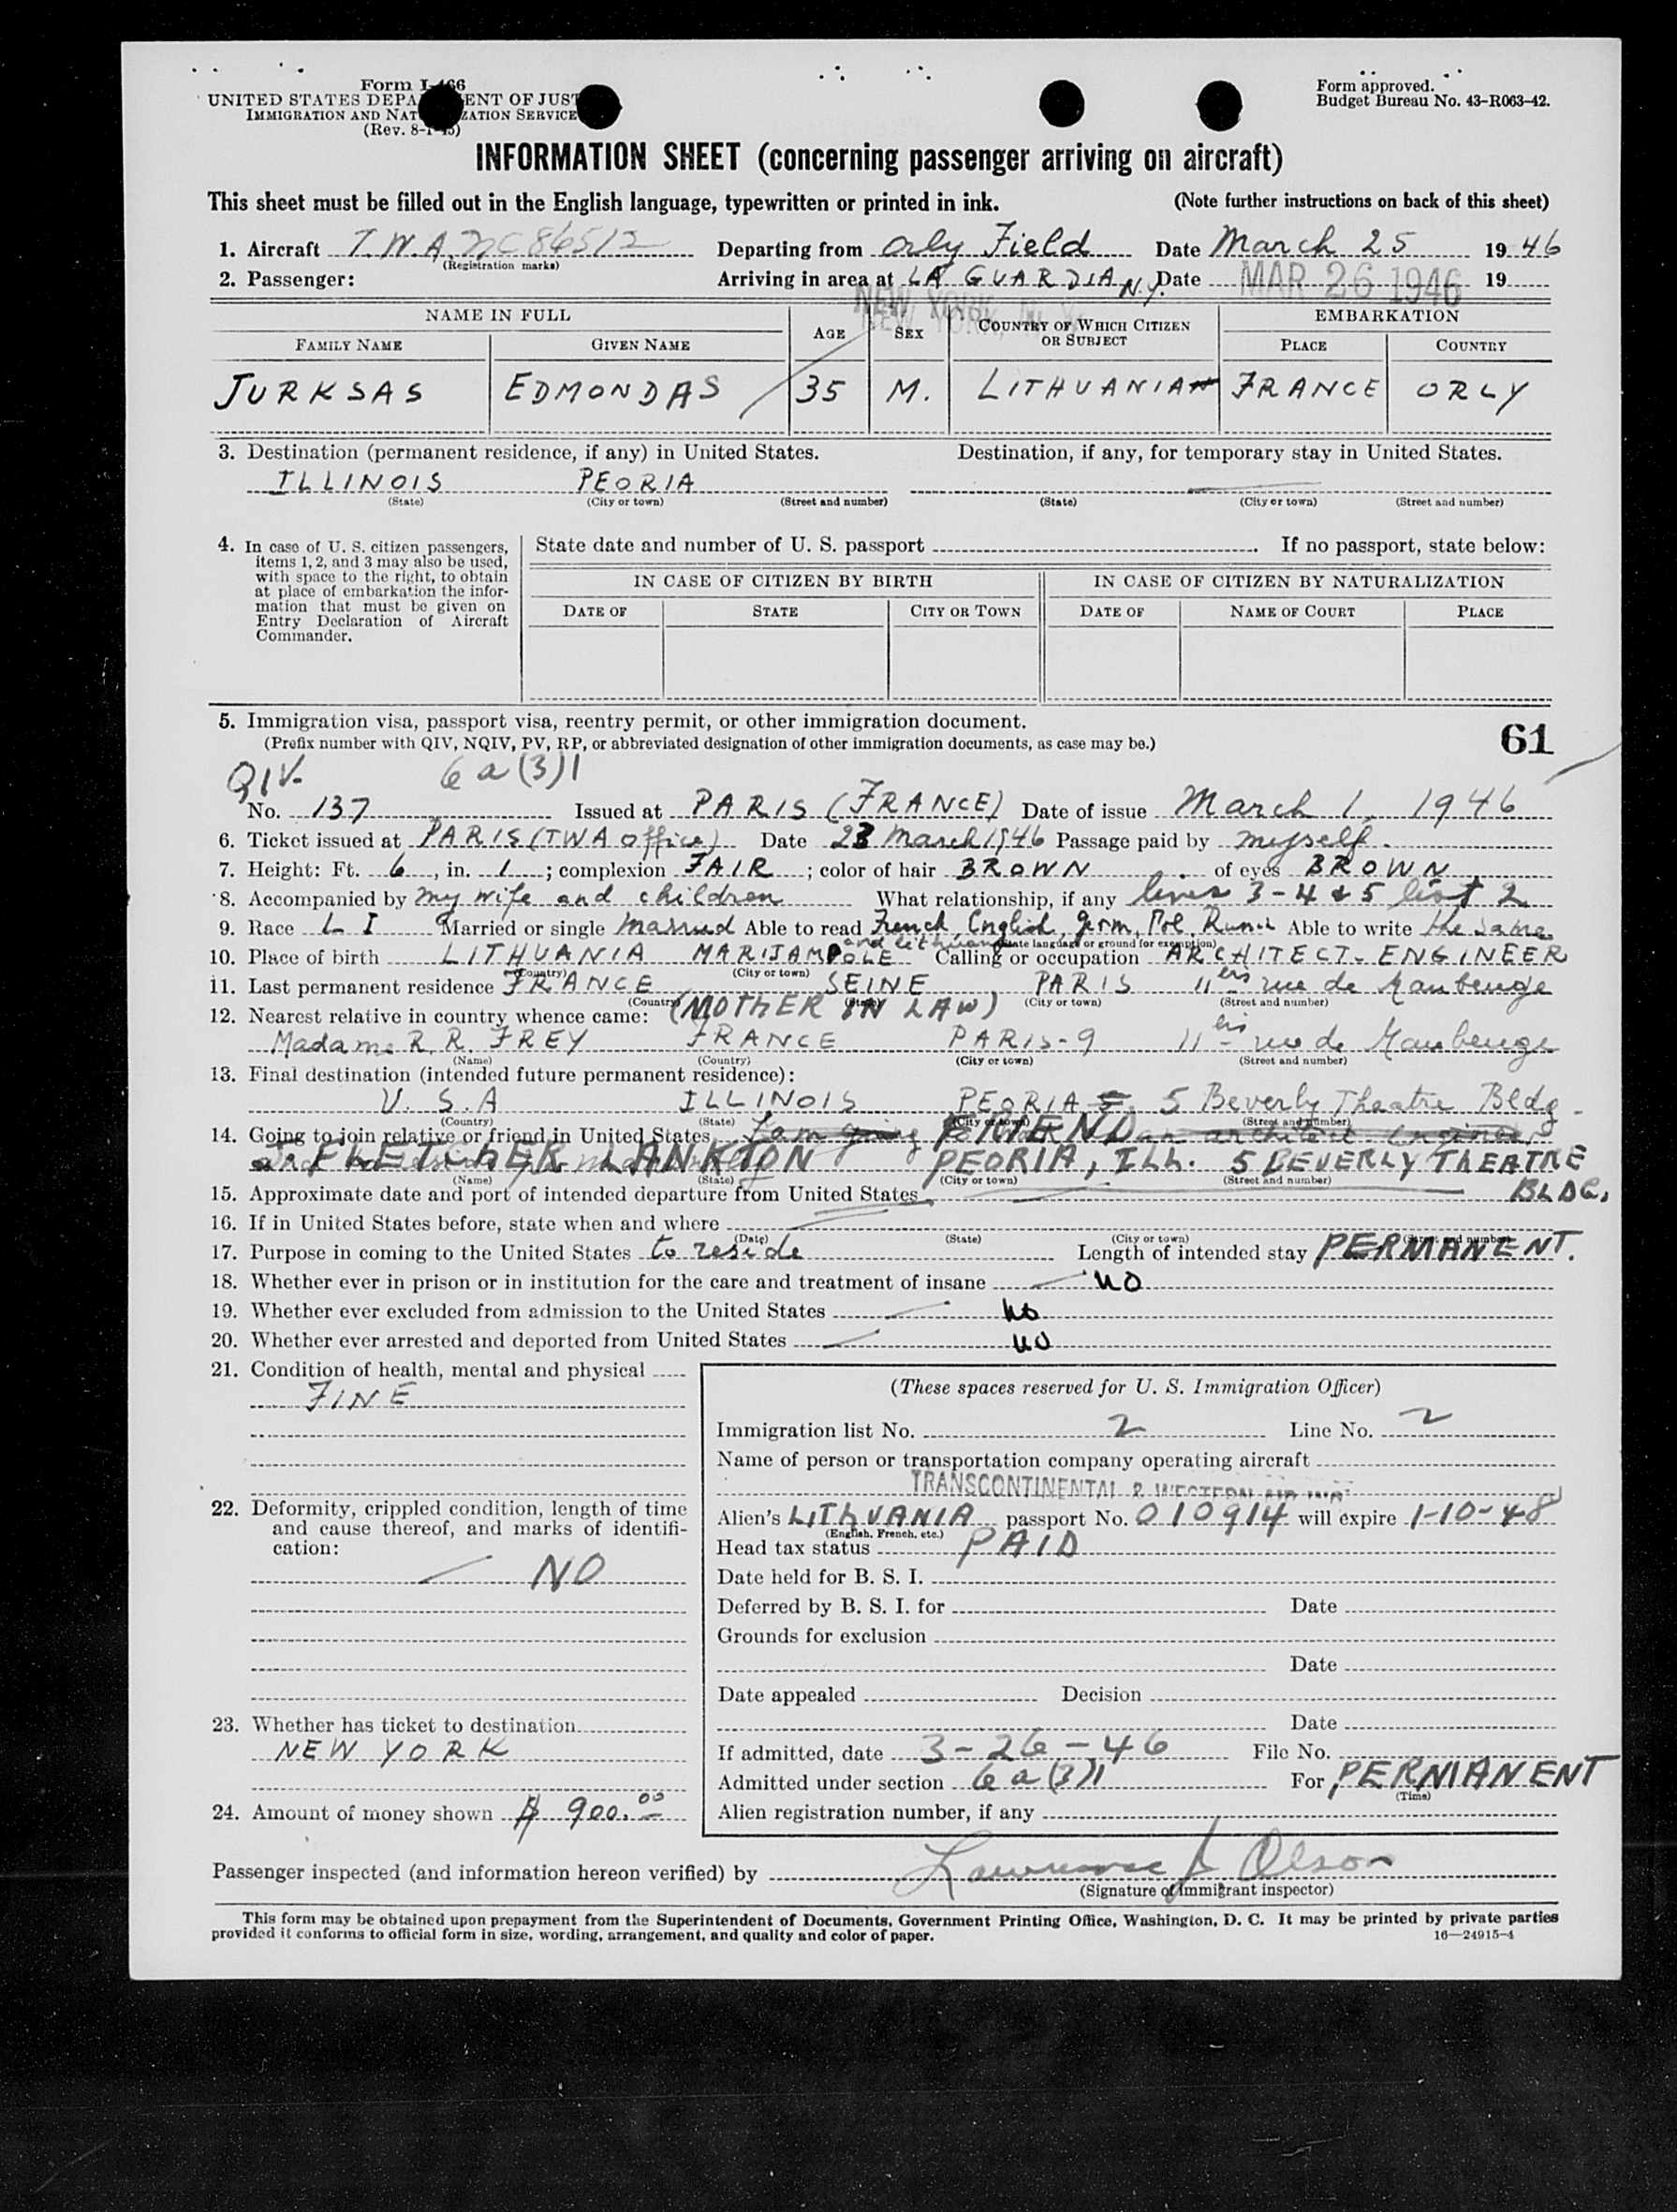 Form I-466
UNITED STATES DEPARTMENT OF JUSTICE
IMMIGRATION AND NATURALIZATION SERVICE
(Rev. 8-1-45)
Form approved.
Budget Bureau No. 43-R063-42.
INFORMATION SHEET (concerning passenger arriving on aircraft)
This sheet must be filled out in the English language, typewritten or printed in ink. (Note further instructions on back of this sheet)
1. Aircraft T.W.A. NC 86512 Departing from Orly Field Date March 25 1946
(Registration marks)
2. Passenger: Arriving in area at LA GUARDIA N.Y. Date MAR 26 1946 19
NEW YORK, N. Y.
NAME IN FULL AGE SEX COUNTRY OF WHICH CITIZEN OR SUBJECT EMBARKATION
FAMILY NAME GIVEN NAME PLACE COUNTRY
JURKSAS EDMONDAS 35 M. LITHUANIA FRANCE ORLY
3. Destination (permanent residence, if any) in United States. Destination, if any, for temporary stay in United States.
ILLINOIS PEORIA
(State) (City or town) (Street and number) (State) (City or town) (Street and number)
4. In case of U. S. citizen passengers, items 1, 2, and 3 may also be used, with space to the right, to obtain at place of embarkation the information that must be given on Entry Declaration of Aircraft Commander.
State date and number of U. S. passport If no passport, state below:
IN CASE OF CITIZEN BY BIRTH IN CASE OF CITIZEN BY NATURALIZATION
DATE OF STATE CITY OR TOWN DATE OF NAME OF COURT PLACE
5. Immigration visa, passport visa, reentry permit, or other immigration document.
61
(Prefix number with QIV, NQIV, PV, RP, or abbreviated designation of other immigration documents, as case may be.)
QIV. 6a(3)1
No. 137 Issued at PARIS (FRANCE) Date of issue March 1, 1946
6. Ticket issued at PARIS (TWA office) Date 23 March 1946 Passage paid by myself.
7. Height: Ft. 6, in. 1; complexion FAIR; color of hair BROWN of eyes BROWN
8. Accompanied by my wife and children What relationship, if any lines 3-4 & 5 list 2
9. Race LI Married or single married Able to read French, English, Germ, Pol, Able to write the same
and (State language or ground for exemption)
10. Place of birth LITHUANIA MARIJAMPOLE Calling or occupation ARCHITECT-ENGINEER
(Country) (City or town)
11. Last permanent residence FRANCE SEINE PARIS 11 bis rue de Maubeuge
(Country) (State) (City or town) (Street and number)
12. Nearest relative in country whence came: (MOTHER IN LAW)
Madame R. R. FREY FRANCE PARIS-9 11 bis rue de Maubeuge
(Name) (Country) (City or town) (Street and number)
13. Final destination (intended future permanent residence):
U.S.A ILLINOIS PEORIA 5 Beverly Theatre Bldg
(Country) (State) (City or town) (Street and number)
14. Going to join relative or friend in United States FRIEND
FLETCHER LANKTON PEORIA, ILL. 5 BEVERLY THEATRE BLDG.
(Name) (State) (City or town) (Street and number)
15. Approximate date and port of intended departure from United States
16. If in United States before, state when and where
(Date) (State) (City or town) (Street and number)
17. Purpose in coming to the United States to reside Length of intended stay PERMANENT.
18. Whether ever in prison or in institution for the care and treatment of insane no
19. Whether ever excluded from admission to the United States no
20. Whether ever arrested and deported from United States no
21. Condition of health, mental and physical
FINE
22. Deformity, crippled condition, length of time
and cause thereof, and marks of identifi-
cation:
NO
23. Whether has ticket to destination
NEW YORK
24. Amount of money shown $ 900.00
(These spaces reserved for U. S. Immigration Officer)
Immigration list No. 2 Line No. 2
Name of person or transportation company operating aircraft
TRANSCONTINENTAL & WESTERN AIR INC.
Alien's LITHUANIA passport No. 010914 will expire 1-10-48
(English, French, etc.)
Head tax status PAID
Date held for B. S. I.
Deferred by B. S. I. for Date
Grounds for exclusion
Date
Date appealed Decision
Date
If admitted, date 3-26-46 File No.
Admitted under section 6a(3)1 For PERMANENT
(Time)
Alien registration number, if any
Passenger inspected (and information hereon verified) by Lawrence J Olson
(Signature of Immigrant inspector)
This form may be obtained upon prepayment from the Superintendent of Documents, Government Printing Office, Washington, D. C. It may be printed by private parties
provided it conforms to official form in size, wording, arrangement, and quality and color of paper. 16—24915-4